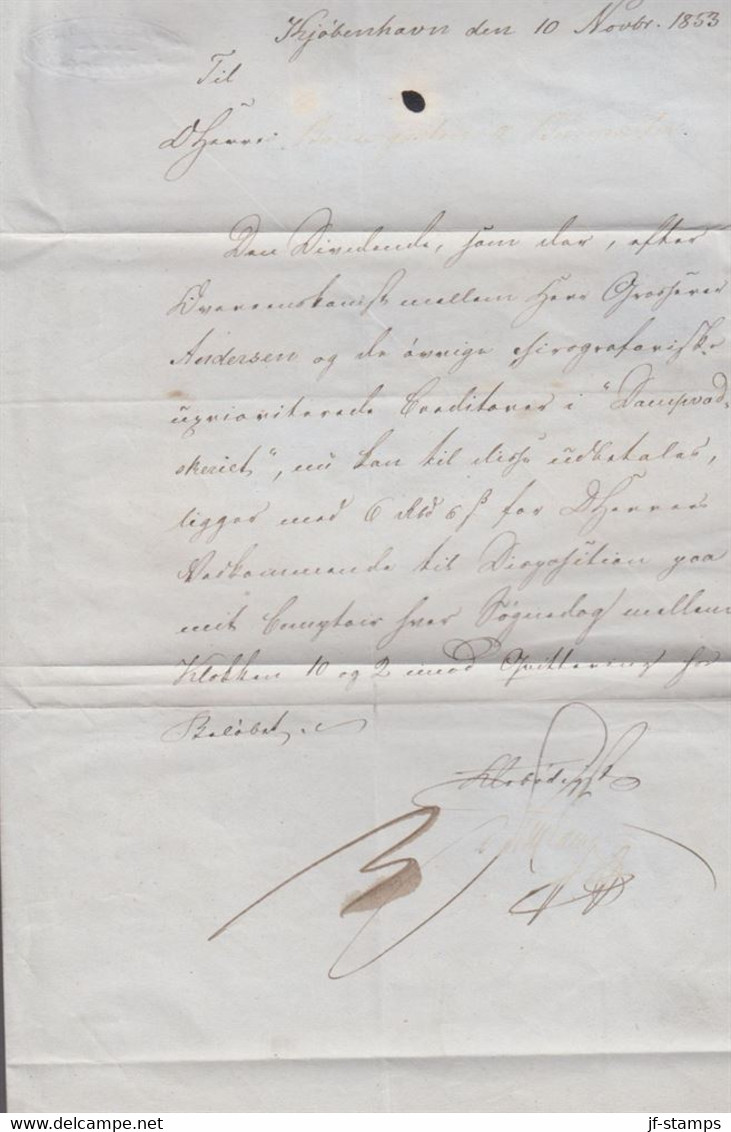 Kjöbenhavn den 10 Novbr. 1853
Til
DHerrer
Den Dividende, som der, efter
Overeenskomst mellem Herr Grosserer
Andersen og de övrige chirografariske
uprioriterede Creditorer i "Dampvad-
skeriet", nu kan til disse udbetales,
ligger med 6 Rbd 6 ß for DHerrer
Vedkommende til Disposition paa
mit Comptoir hver Sögnedag mellem
Klokken 10 og 2 mod Qvittering for
Belöbet.
Ærbödigst
delcampe.net
jf-stamps